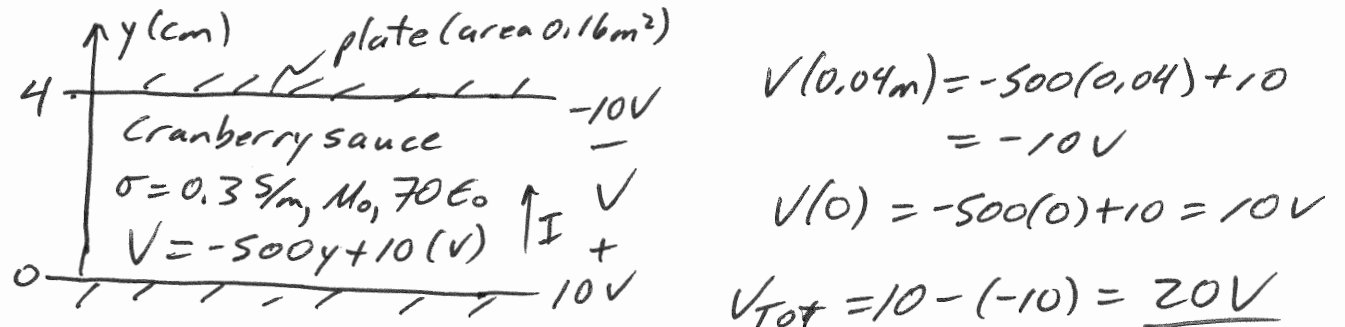 y (cm)
plate (area 0.16m²)
4
-10V
Cranberry sauce
-
σ = 0.3 S/m, μ₀, 70 ε₀
V
V = -500y + 10 (V)
I
+
0
10V
V(0.04m) = -500(0.04) + 10
= -10V
V(0) = -500(0) + 10 = 10V
V_Tot = 10 - (-10) = 20V